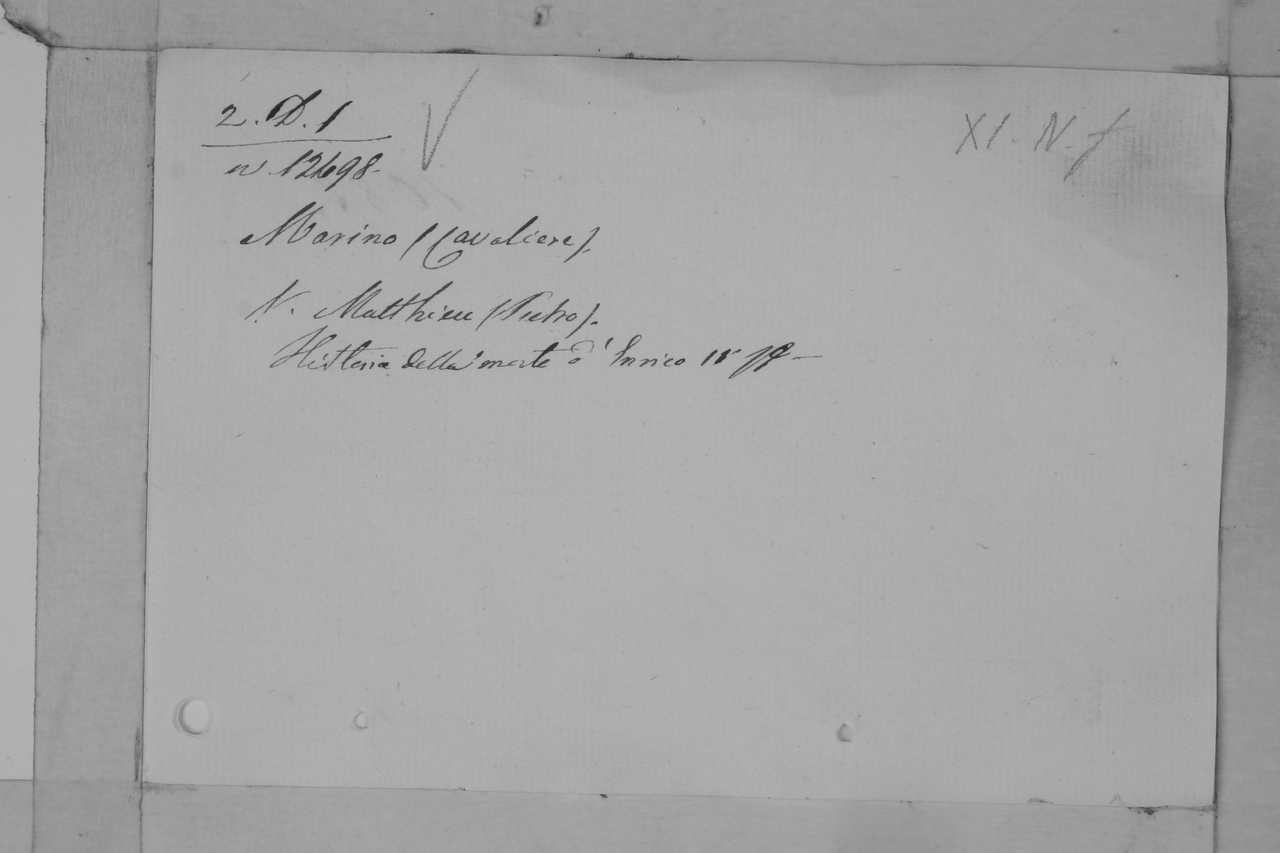 2. D. 1
XI. N. f
n. 12698
Marino (Cavaliere).
V. Matthieu (Pietro).
Historia della morte d'Enrico